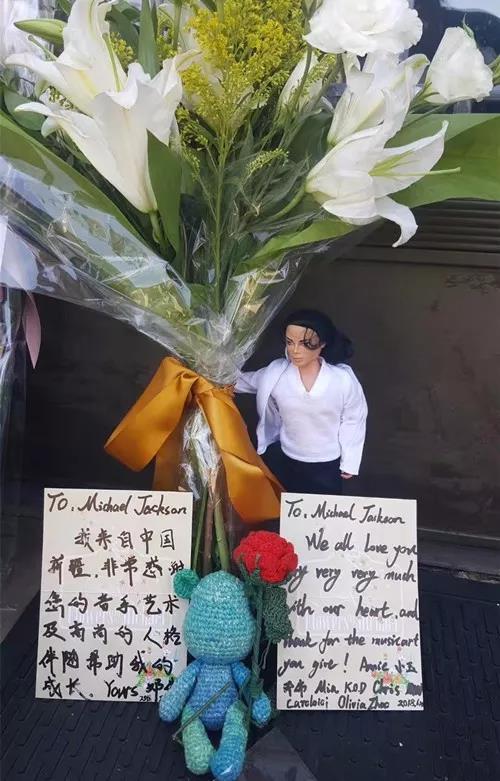 To, Michael Jackson
我来自中国
新疆，非常感谢
您的音乐艺术
及高尚的人格
伴随帮助我的
成长、Yours
To, Michael Jaikson
We all love you
very very very much
with our heart, and
thank for the music art
you give! Annie 小玉
Mia K.O.D Chris
Olivia Zhao 2018.